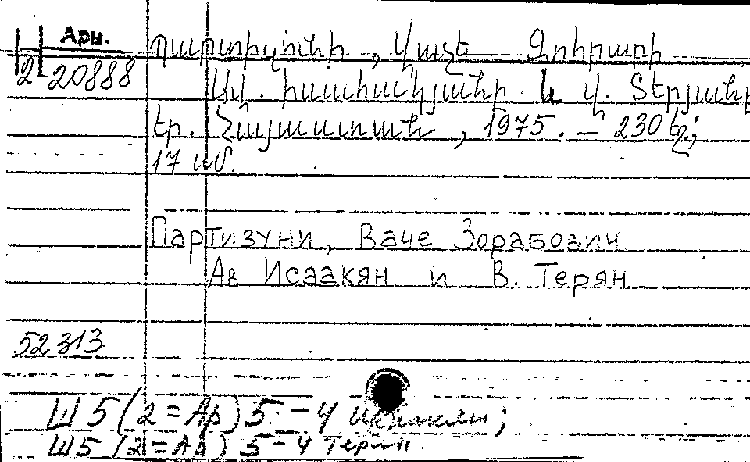 Арм.
2 20888
Պարտիզունի, Վաչե Զոհրաբի
Ավ. Իսահակյանի և Վ. Տերյանի
Եր. Հայաստան, 1975. – 230 էջ;
17 սմ.
Партизуни, Ваче Зорабович
Ав Исаакян и В. Терян
52313
Ш5(2=Ар)5-4 Исаакян;
Ш5(2=Ар)5-4 Терян